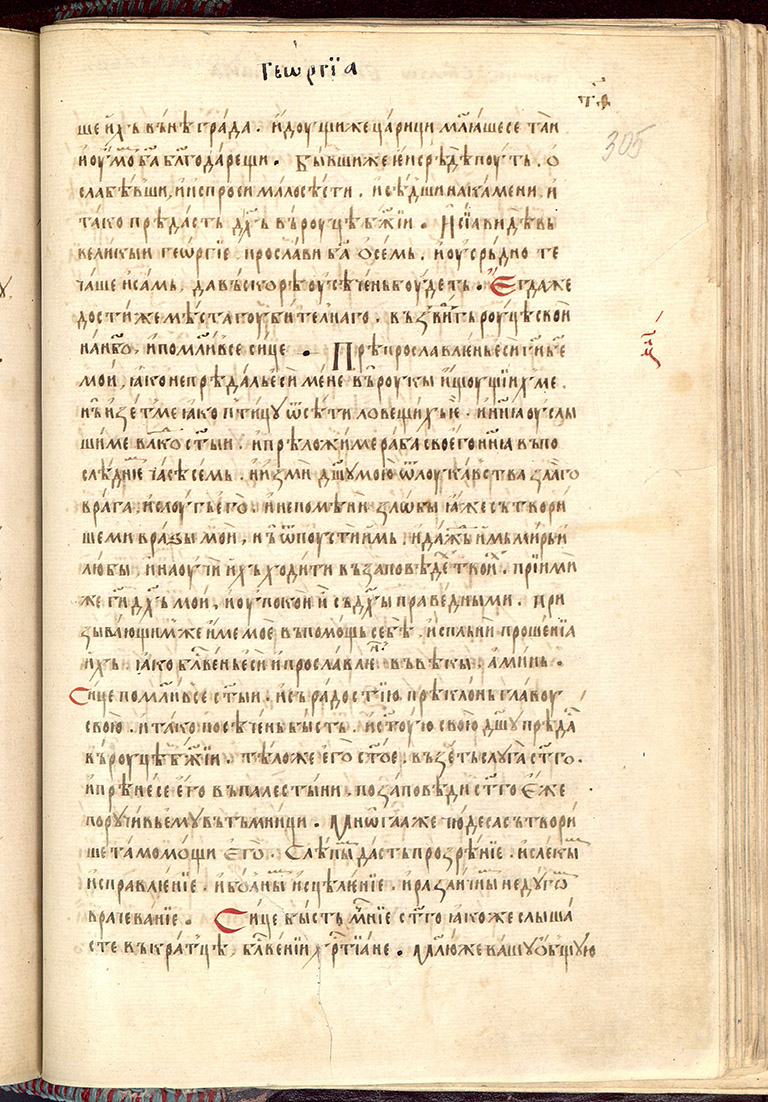 геѡргїа
т҃в
305
ше и́хь вьнѣ града. и́доущи же царици мл҃ꙗше се таи
и оу҆мо б҃а благодарещи. бывши же е́и срѣдѣ поуть. ѻ
слабѣвши, и҆ испроси мало сѣсти. и сѣдши на камени. и
тако прѣдасть дх҃ь вь роуцѣ бж҃їи. И сїа видѣвь
великыи геѡргїе. прослави б҃а ѻ семь. и оусрьдно те
чаше и самь, да вьскорѣ оусѣчень боудеть. Егда же
достиже мѣста гоубителнаго. вьздвигь роуцѣ свои
на нб҃о, и помл҃и се сице. Прѣпрославлень еси ги҃ б҃е
мои, ꙗко не прѣдаль еси мене вь роукы ищоущїих ме.
нь изет ме ꙗко птицу ѿ сѣти ловещихь ю. и нн҃ꙗ оуслы
ши ме влⷣко ст҃ыи. и прѣложи ме раба своего нн҃ꙗ вь по
слѣдние ꙗсе семь. и изми дш҃у мою ѿ лоукавства злаго
врага, и слоугь его. и не помѣни злѡбы ꙗже сьтвори
ше ми врази мои, нь ѿпоусти имь, и даждь имь мирь и
любы, и наоучи ихь ходити вь заповѣдех твоих. прїими
же ги҃ дх҃ь мои, и оупокои и сь дх҃ы праведными. при
зывающим же име мое вь помощь себѣ, испльни прошенїа
ихь. ꙗко бл҃вень еси и прославлен вь вѣкы, аминь.
Сице помл҃и се ст҃ыи. и сь радостїю прѣклонь главоу
свою. и тако посѣчень бысть. и ст҃оую свою дш҃у прѣда
вь роуцѣ бж҃їи. тѣло же его ст҃ое. вьзеть слуга ст҃го.
и прѣнесе его вь палестыни. по заповѣди ст҃го еже
поручи ѥму вь тьмници. Мнѡга же чюдеса сьтвори
ше та мощи его. Слѣпым дасть прозрѣнїе. и слекым
исправлѥнїе. и болным исцѣленїе. и различным недугѡм
врачеванїе. Сице бысть мч҃нїе ст҃го ꙗкоже слыша
сте вькратцѣ, бл҃венїи хрⷭ҇тїане. Млю же вашу общую